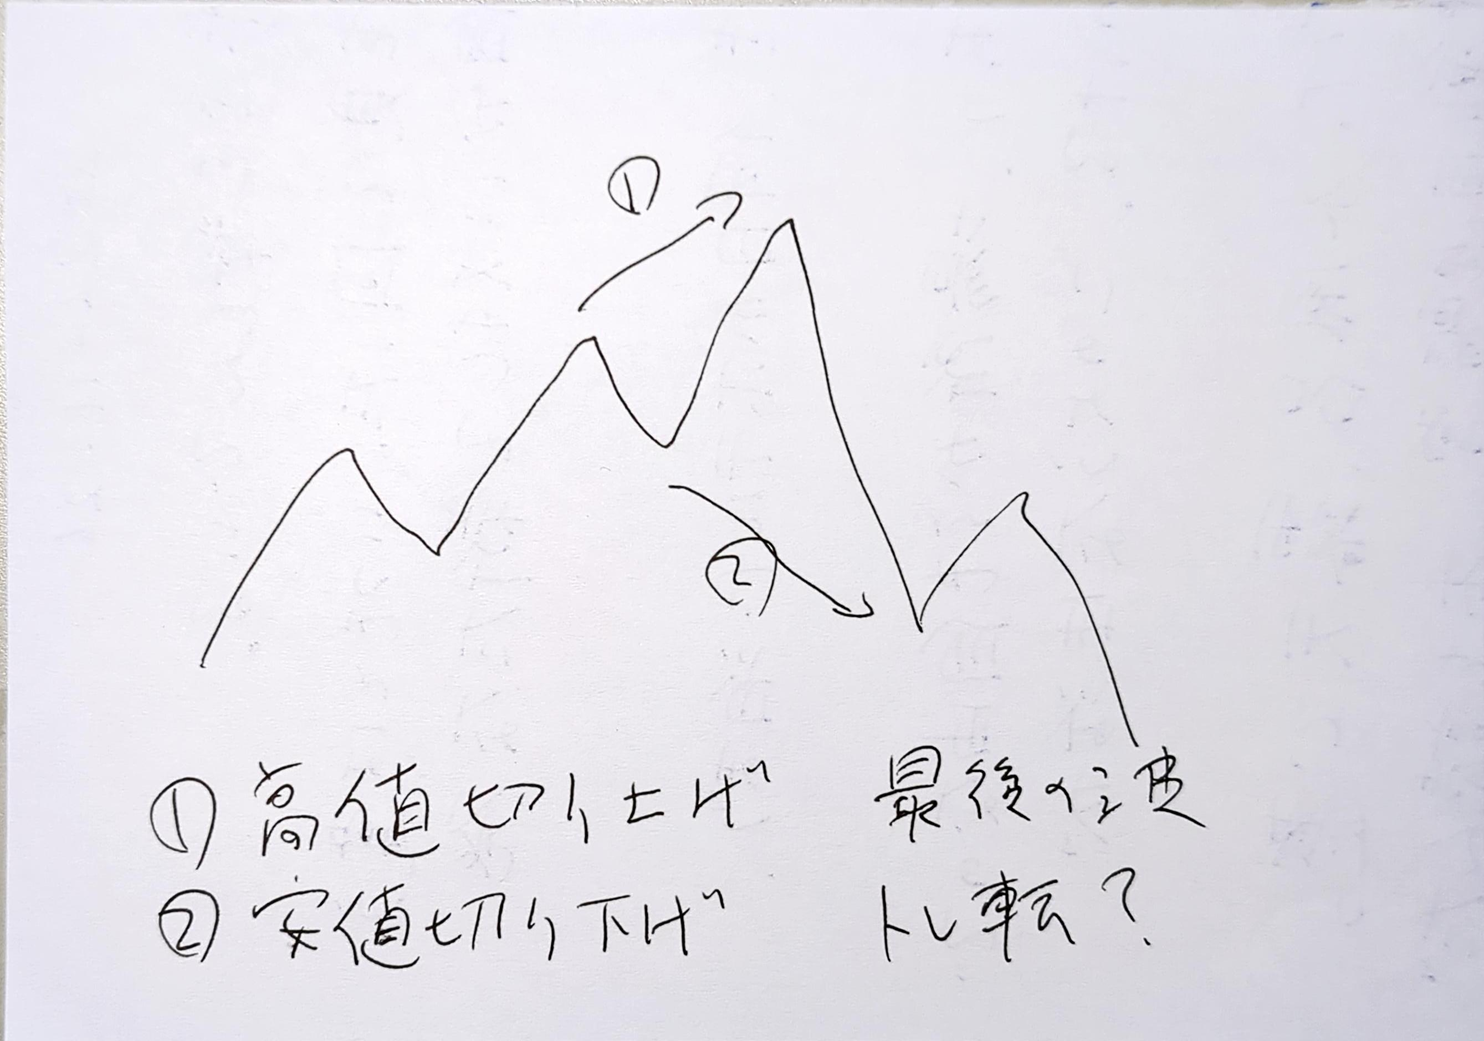 ①
②
①高値切り上げ 最後の波
②安値切り下げ トレ転?